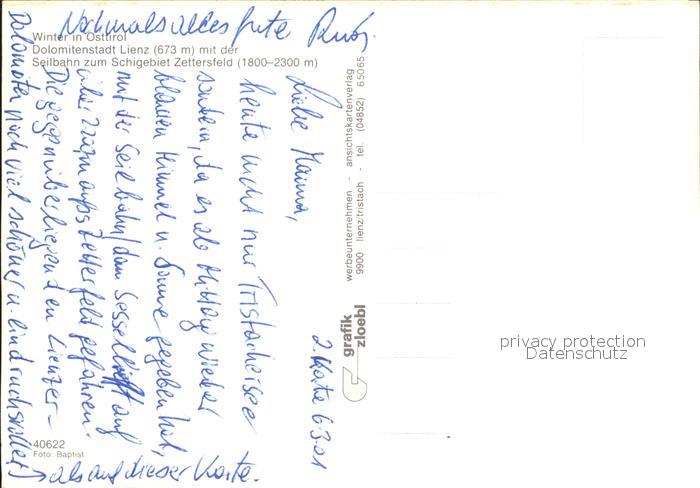 Winter in Osttirol
Dolomitenstadt Lienz (673 m) mit der
Seilbahn zum Schigebiet Zettersfeld (1800–2300 m)
2. Karte 6.3.01
Liebe Mama,
heute nicht nur Tristachersee
sondern, da es ab Mittag wieder
blauen Himmel u. Sonne gegeben hat,
mit der Seilbahn/dann Sessellift auf
aufs Zetterfeld gefahren.
Die gegenüberliegenden Lienzer-
Dolomiten noch viel schöner u. eindrucksvoller
als auf dieser Karte.
Nochmals alles gute
grafik
zloebl
werbeunternehmen - ansichtskartenverlag
9900 lienz/tristach - tel. (04852) 65065
40622
Foto: Baptist
privacy protection
Datenschutz